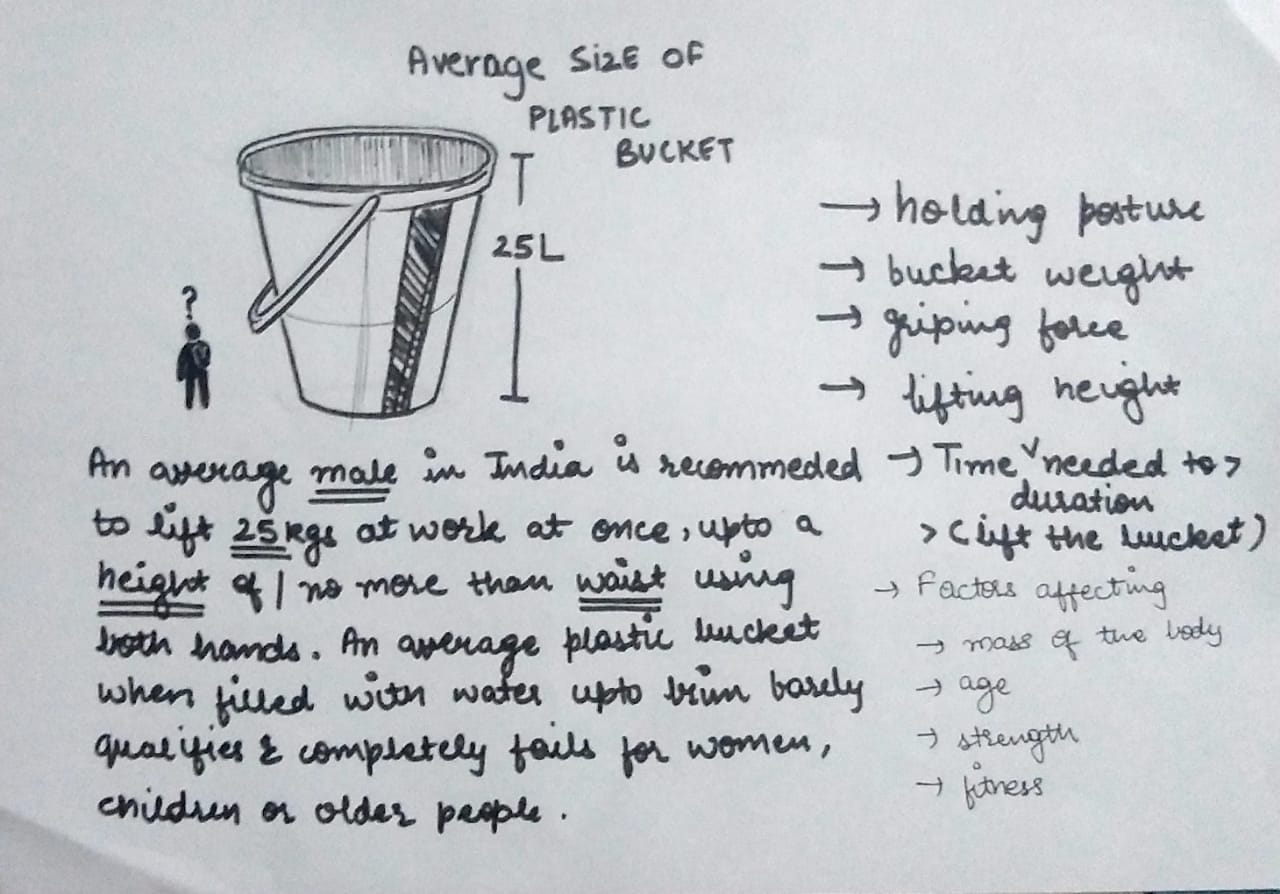 Average SIZE OF
PLASTIC
BUCKET
25L
?
→ holding posture
→ bucket weight
→ griping force
→ lifting height
An average male in India is recommeded
to lift 25kgs at work at once, upto a
height of / no more than waist using
both hands. An average plastic bucket
when filled with water upto brim barely
qualifies & completely fails for women,
children or older people.
→ Time ˅ needed to >
duration
> (lift the bucket)
→ Factors affecting
→ mass of the body
→ age
→ strength
→ fitness